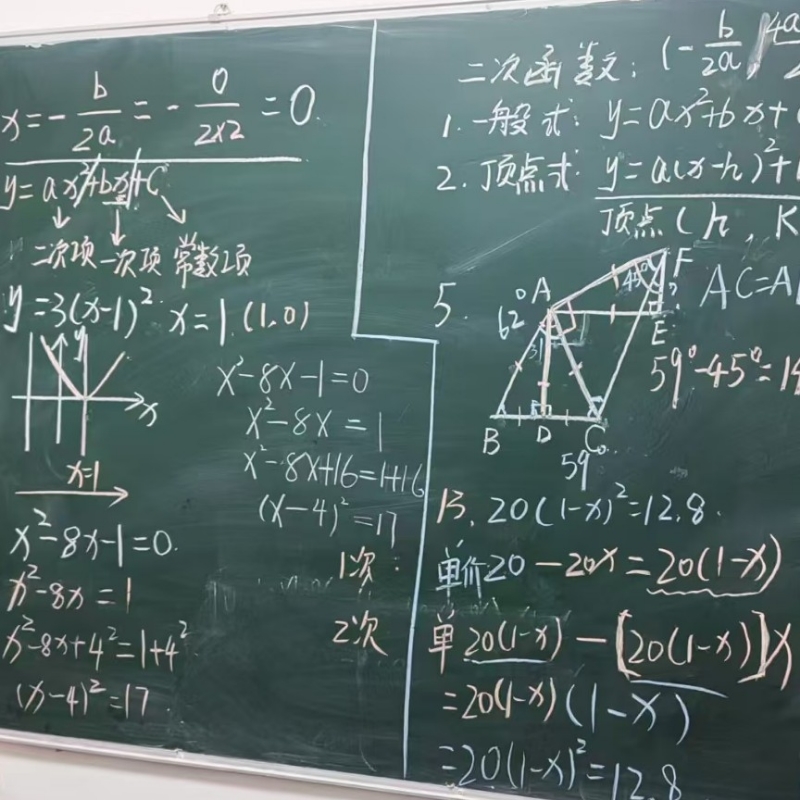 x=-b/2a=-0/2×2=0
y=ax²+bx+C
二次项 一次项 常数项
y=3(x-1)² x=1 (1,0)
y
x
x=1
x²-8x-1=0
x²-8x=1
x²-8x+4²=1+4²
(x-4)²=17
x²-8x-1=0
x²-8x=1
x²-8x+16=1+16
(x-4)²=17
1次:
2次
二次函数: (-b/2a, 4a
1. 一般式: y=ax²+bx+
2. 顶点式: y=a(x-h)²+
顶点(h, K
5.
A
62°
31
45°
F
?
E
B D C
59
AC=A
59°-45°=14
13. 20(1-x)²=12.8
单价20-20x=20(1-x)
单20(1-x)-[20(1-x)]x
=20(1-x)(1-x)
=20(1-x)²=12.8